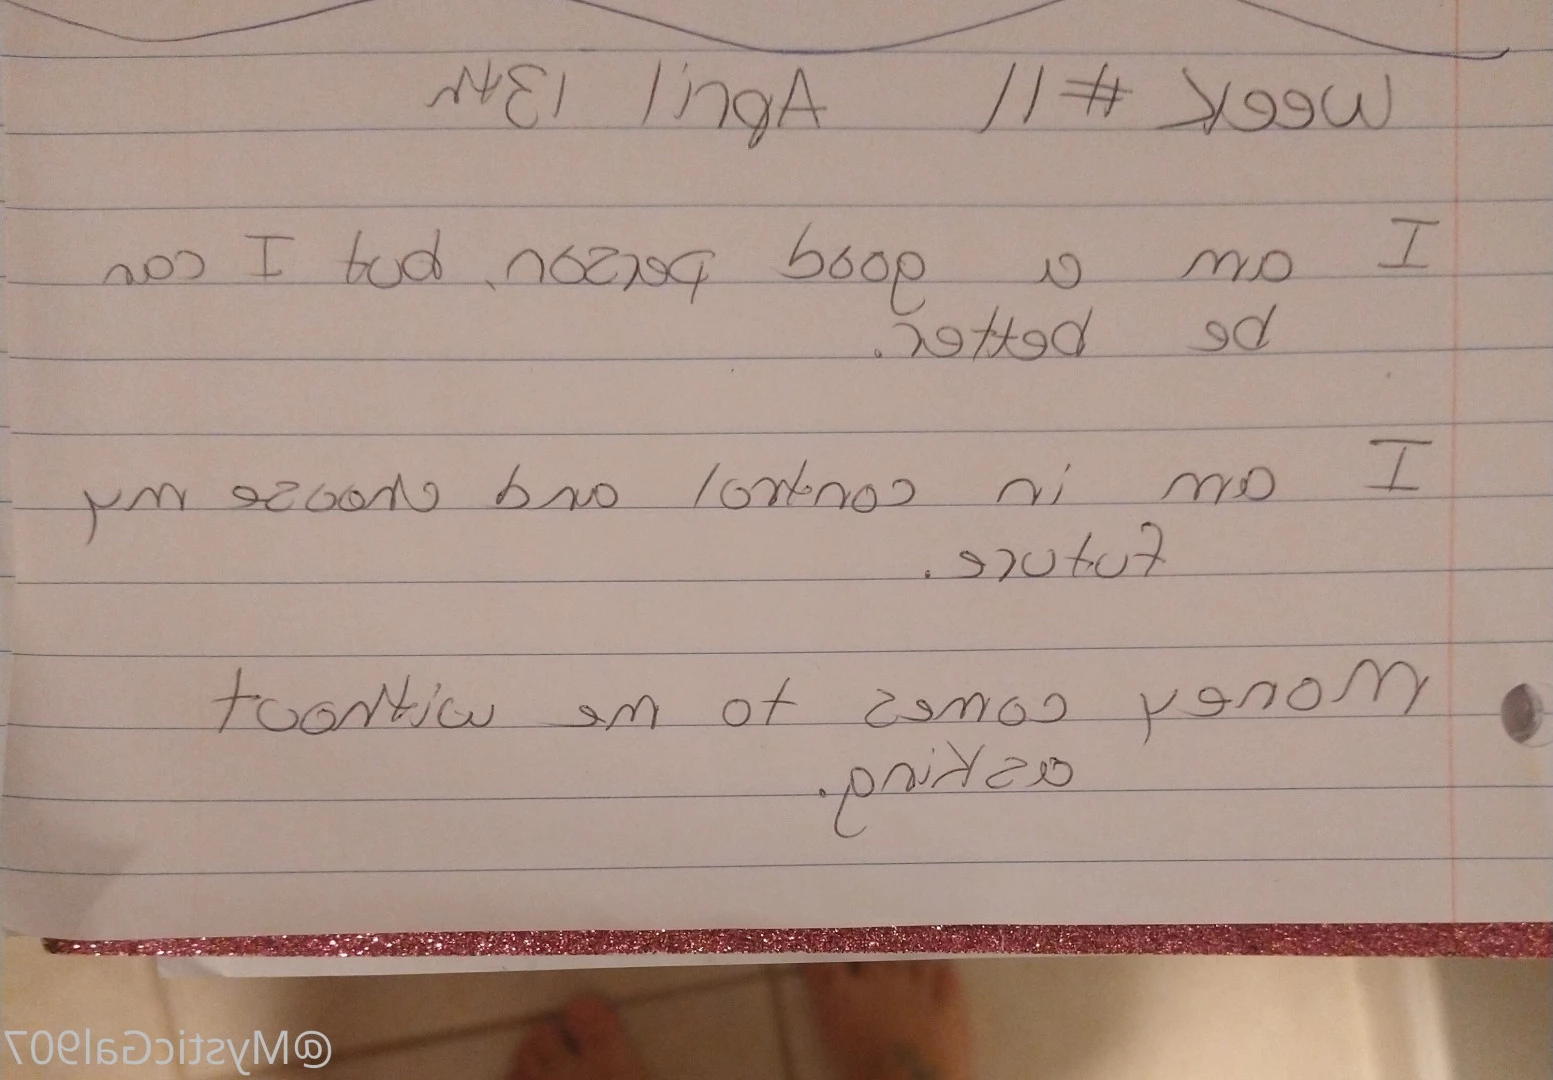 Week #11 April 13th
I am a good person, but I can
be better.
I am in control and choose my
future.
Money comes to me without
asking.
@MysticGal907